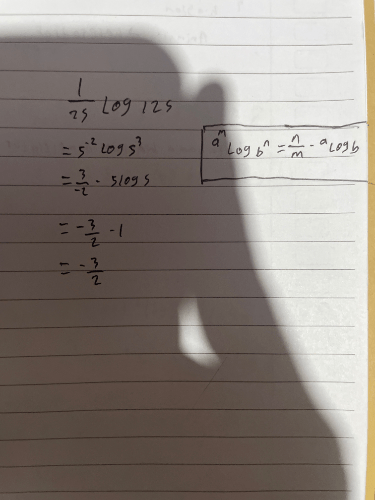 1/25 log 125
= 5⁻² log 5³
= 3/-2 · 5log5
= -3/2 · 1
= -3/2
aᵐ log bⁿ = n/m · ᵃlog b